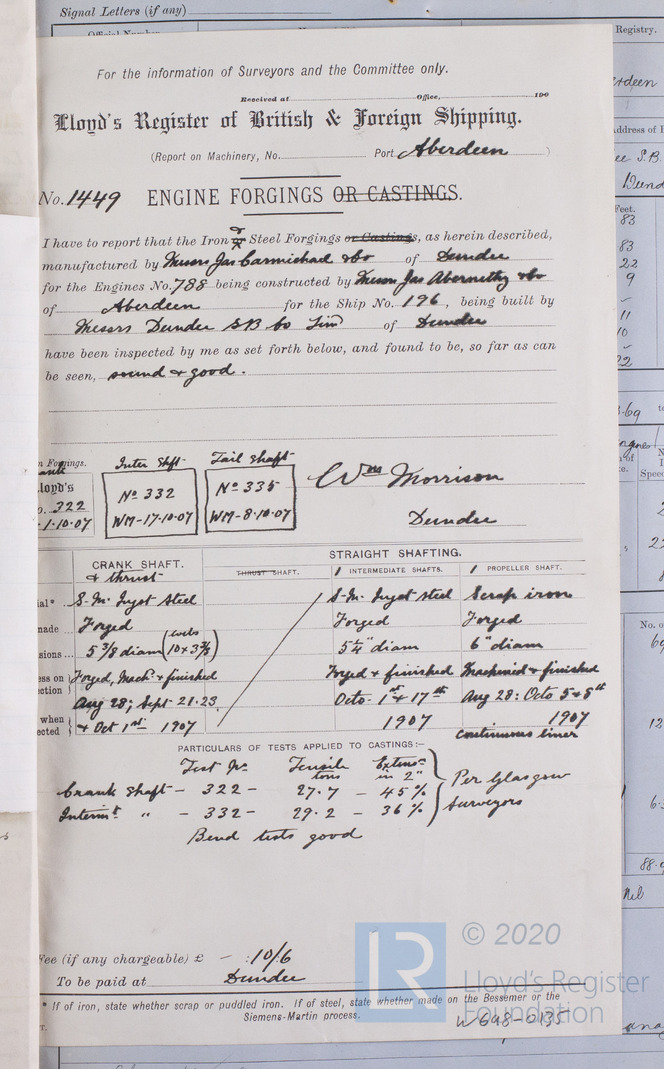 Signal Letters (if any)
Official Number
Registry.
For the information of Surveyors and the Committee only.
Received at Office, 190
Lloyd's Register of British & Foreign Shipping.
(Report on Machinery, No. Port Aberdeen )
No. 1449 ENGINE FORGINGS OR CASTINGS.
I have to report that the Iron or & Steel Forgings or Castings, as herein described,
manufactured by Messrs Jas Carmichael & Co of Dundee
for the Engines No. 788 being constructed by Messrs Jas Abernethy & Co
of Aberdeen for the Ship No. 196, being built by
Messrs Dundee S B Co Lim of Dundee
have been inspected by me as set forth below, and found to be, so far as can
be seen, sound & good.
n Forgings. Inter Shft Tail Shaft
Lloyd's
o. 322 No 332 No 335
1.10.07 WM-17.10.07 WM-8.10.07
Wm Morrison
Dundee
STRAIGHT SHAFTING.
CRANK SHAFT. THRUST SHAFT. 1 INTERMEDIATE SHAFTS. 1 PROPELLER SHAFT.
& thrust
ial* S-M. Ingot Steel S-M. Ingot Steel Scrap iron
made Forged Forged Forged
sions 5 3/8 diam (webs 10 x 3 3/8) 5 1/4" diam 6" diam
ess on Forged, Mach. & finished Forged & finished Machined & finished
ection
Aug 28; Sept 21.23 Octo. 1st & 17th Aug 28: Octo 5 & 8th
when & Oct 1st 1907 1907 1907
ected continuous liner
PARTICULARS OF TESTS APPLIED TO CASTINGS:-
Test No. Tensile tons Extens. in 2"
Crank Shaft - 322 - 27.7 - 45% Per Glasgow
Intermt " - 332 - 29.2 - 36% Surveyors
Bend tests good
Fee (if any chargeable) £ - :10/6
To be paid at Dundee
* If of iron, state whether scrap or puddled iron. If of steel, state whether made on the Bessemer or the
Siemens-Martin process.
W698-0135
LR
© 2020
Lloyd's Register
Foundation